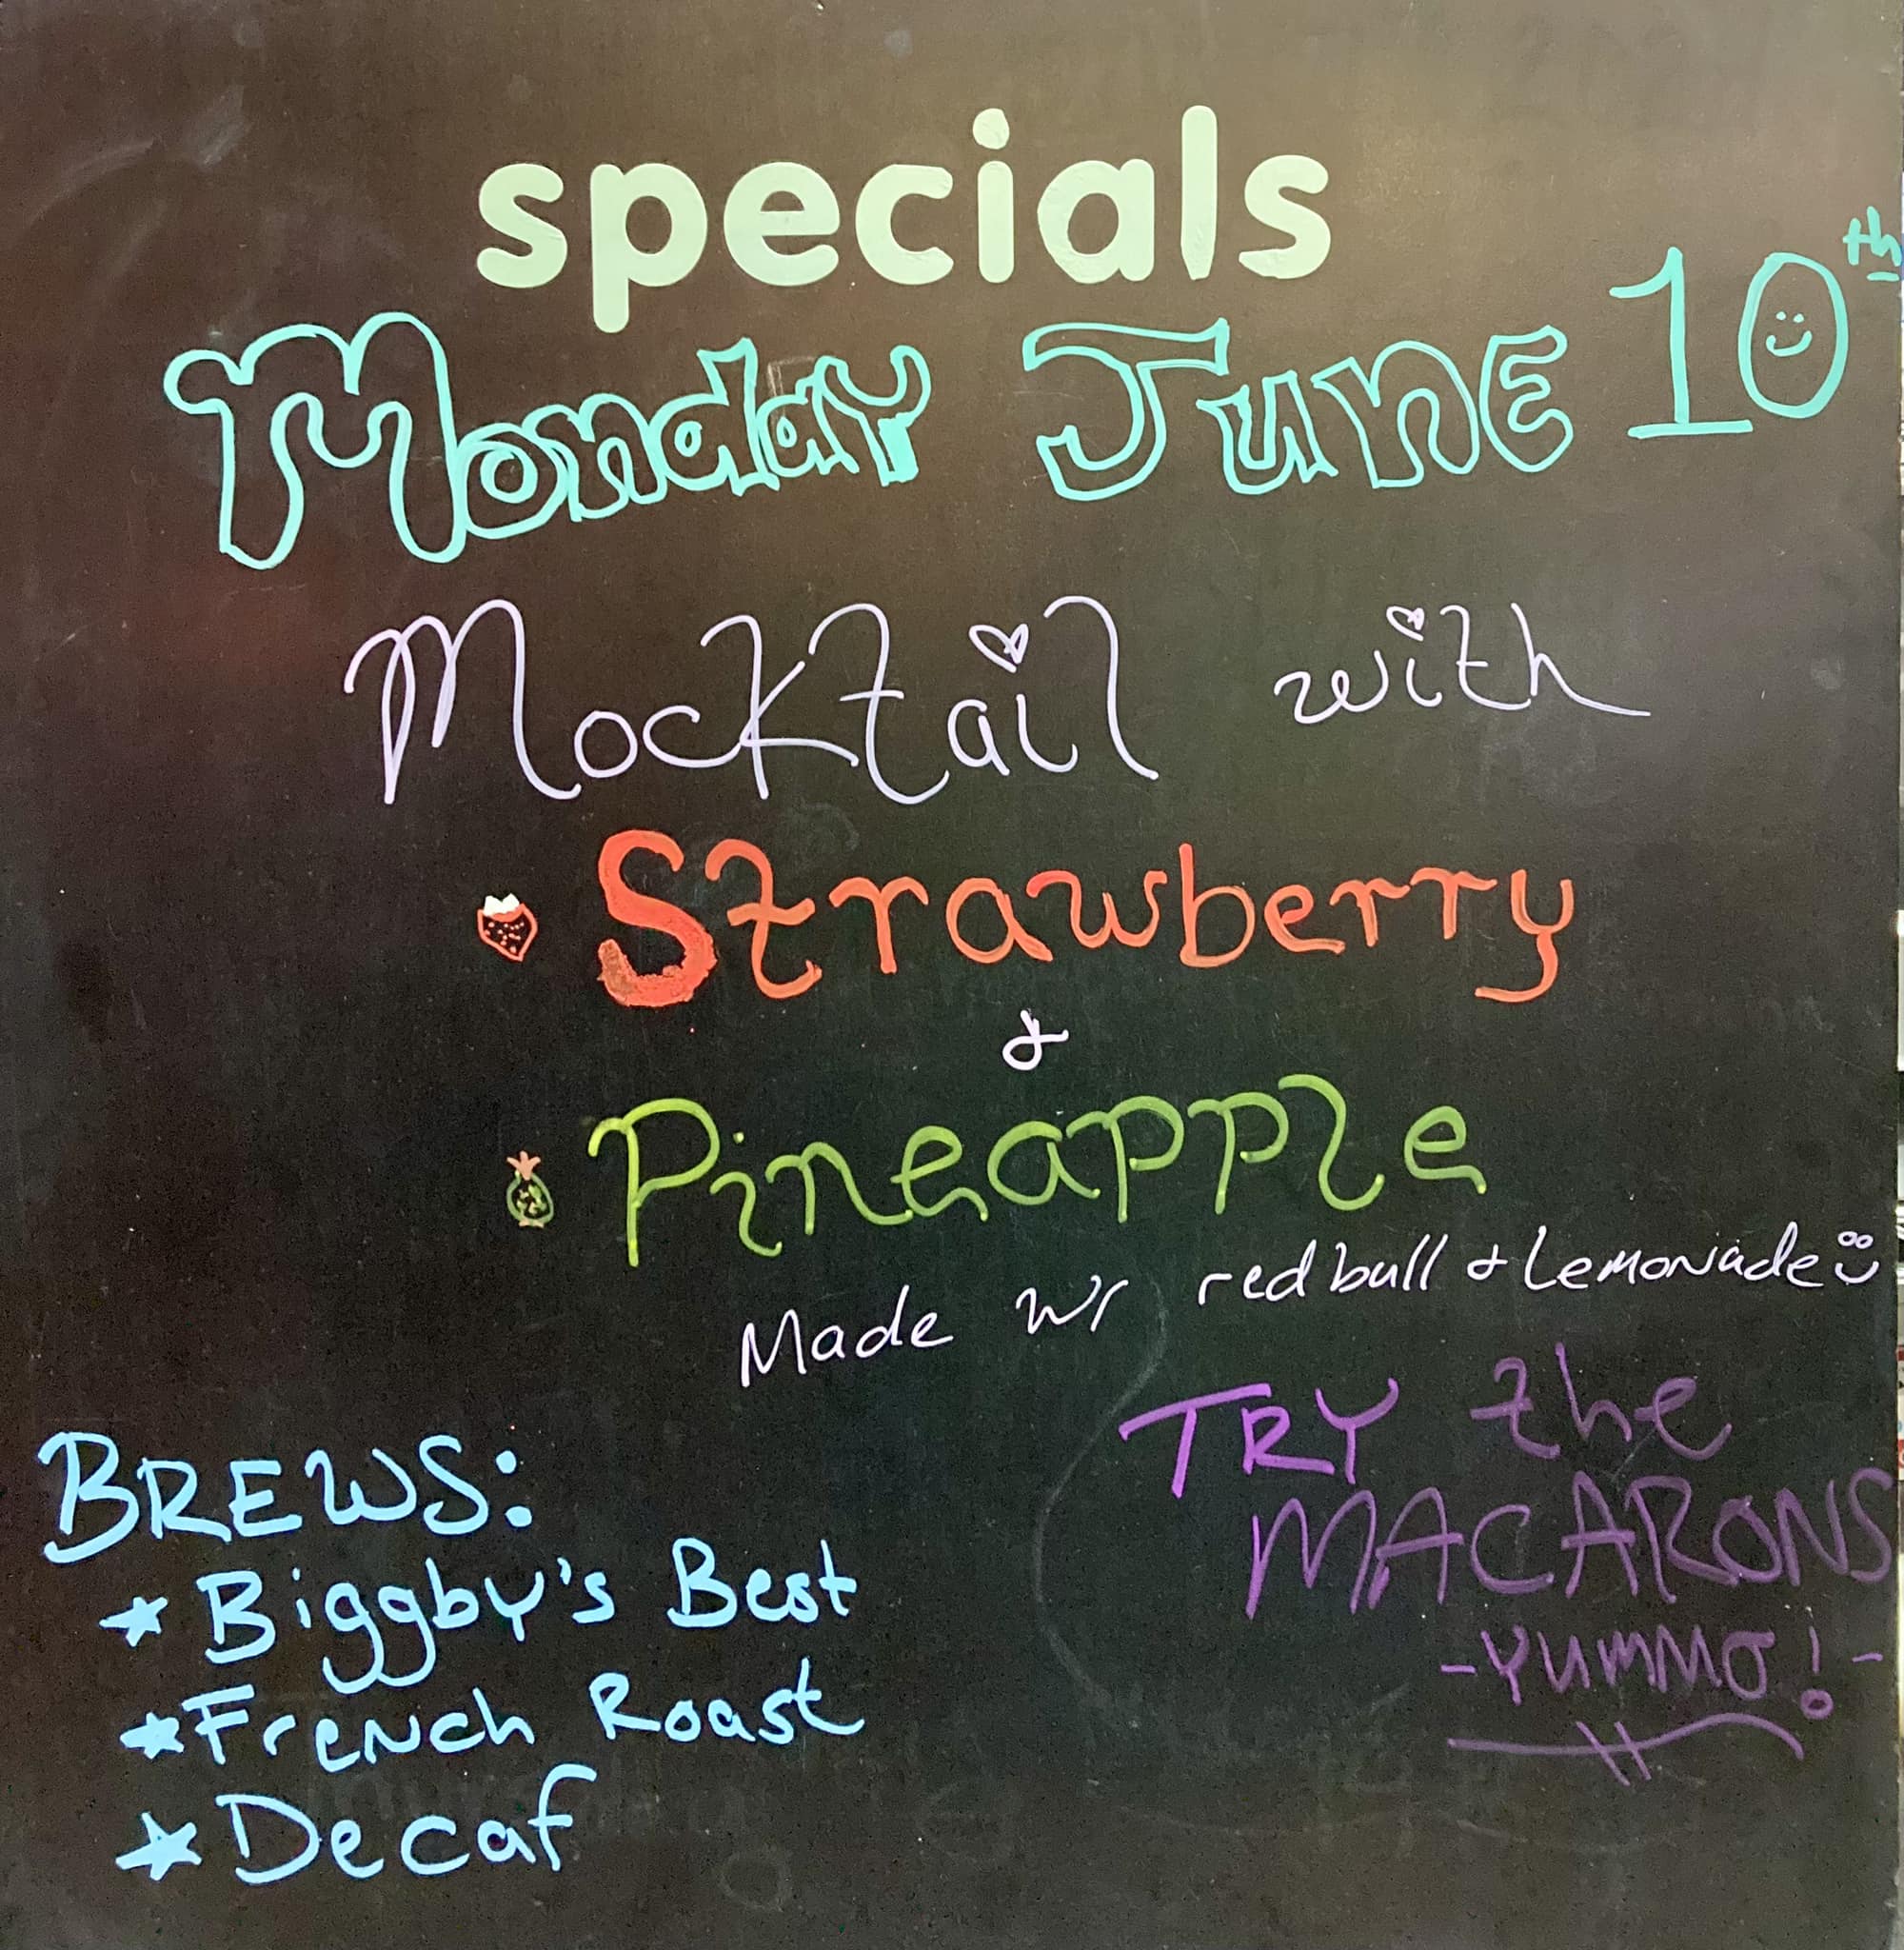 specials
Monday June 10th
Mocktail with
Strawberry
&
Pineapple
Made w/ redbull & Lemonade
TRY the
MACARONS
-YUMMO!-
BREWS:
Biggby's Best
French Roast
Decaf